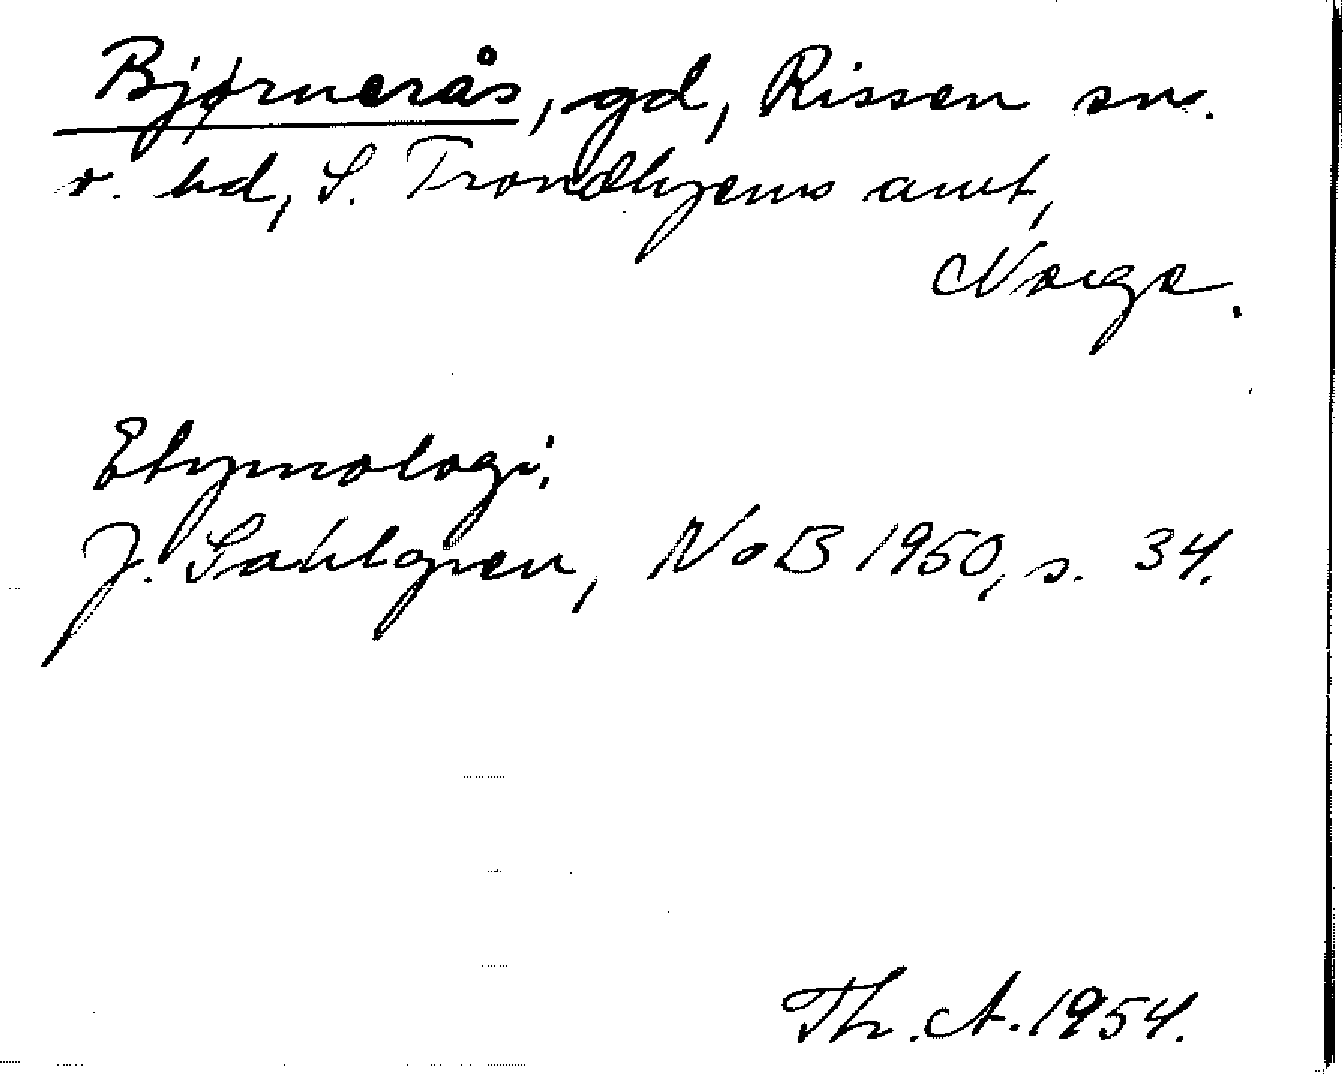 Bjørnerås, gd, Rissen sn.
v. hd, S. Trondhjems amt,
Norge.
Etymologi:
J. Sahlgren, NoB 1950, s. 34.
Th. A. 1954.